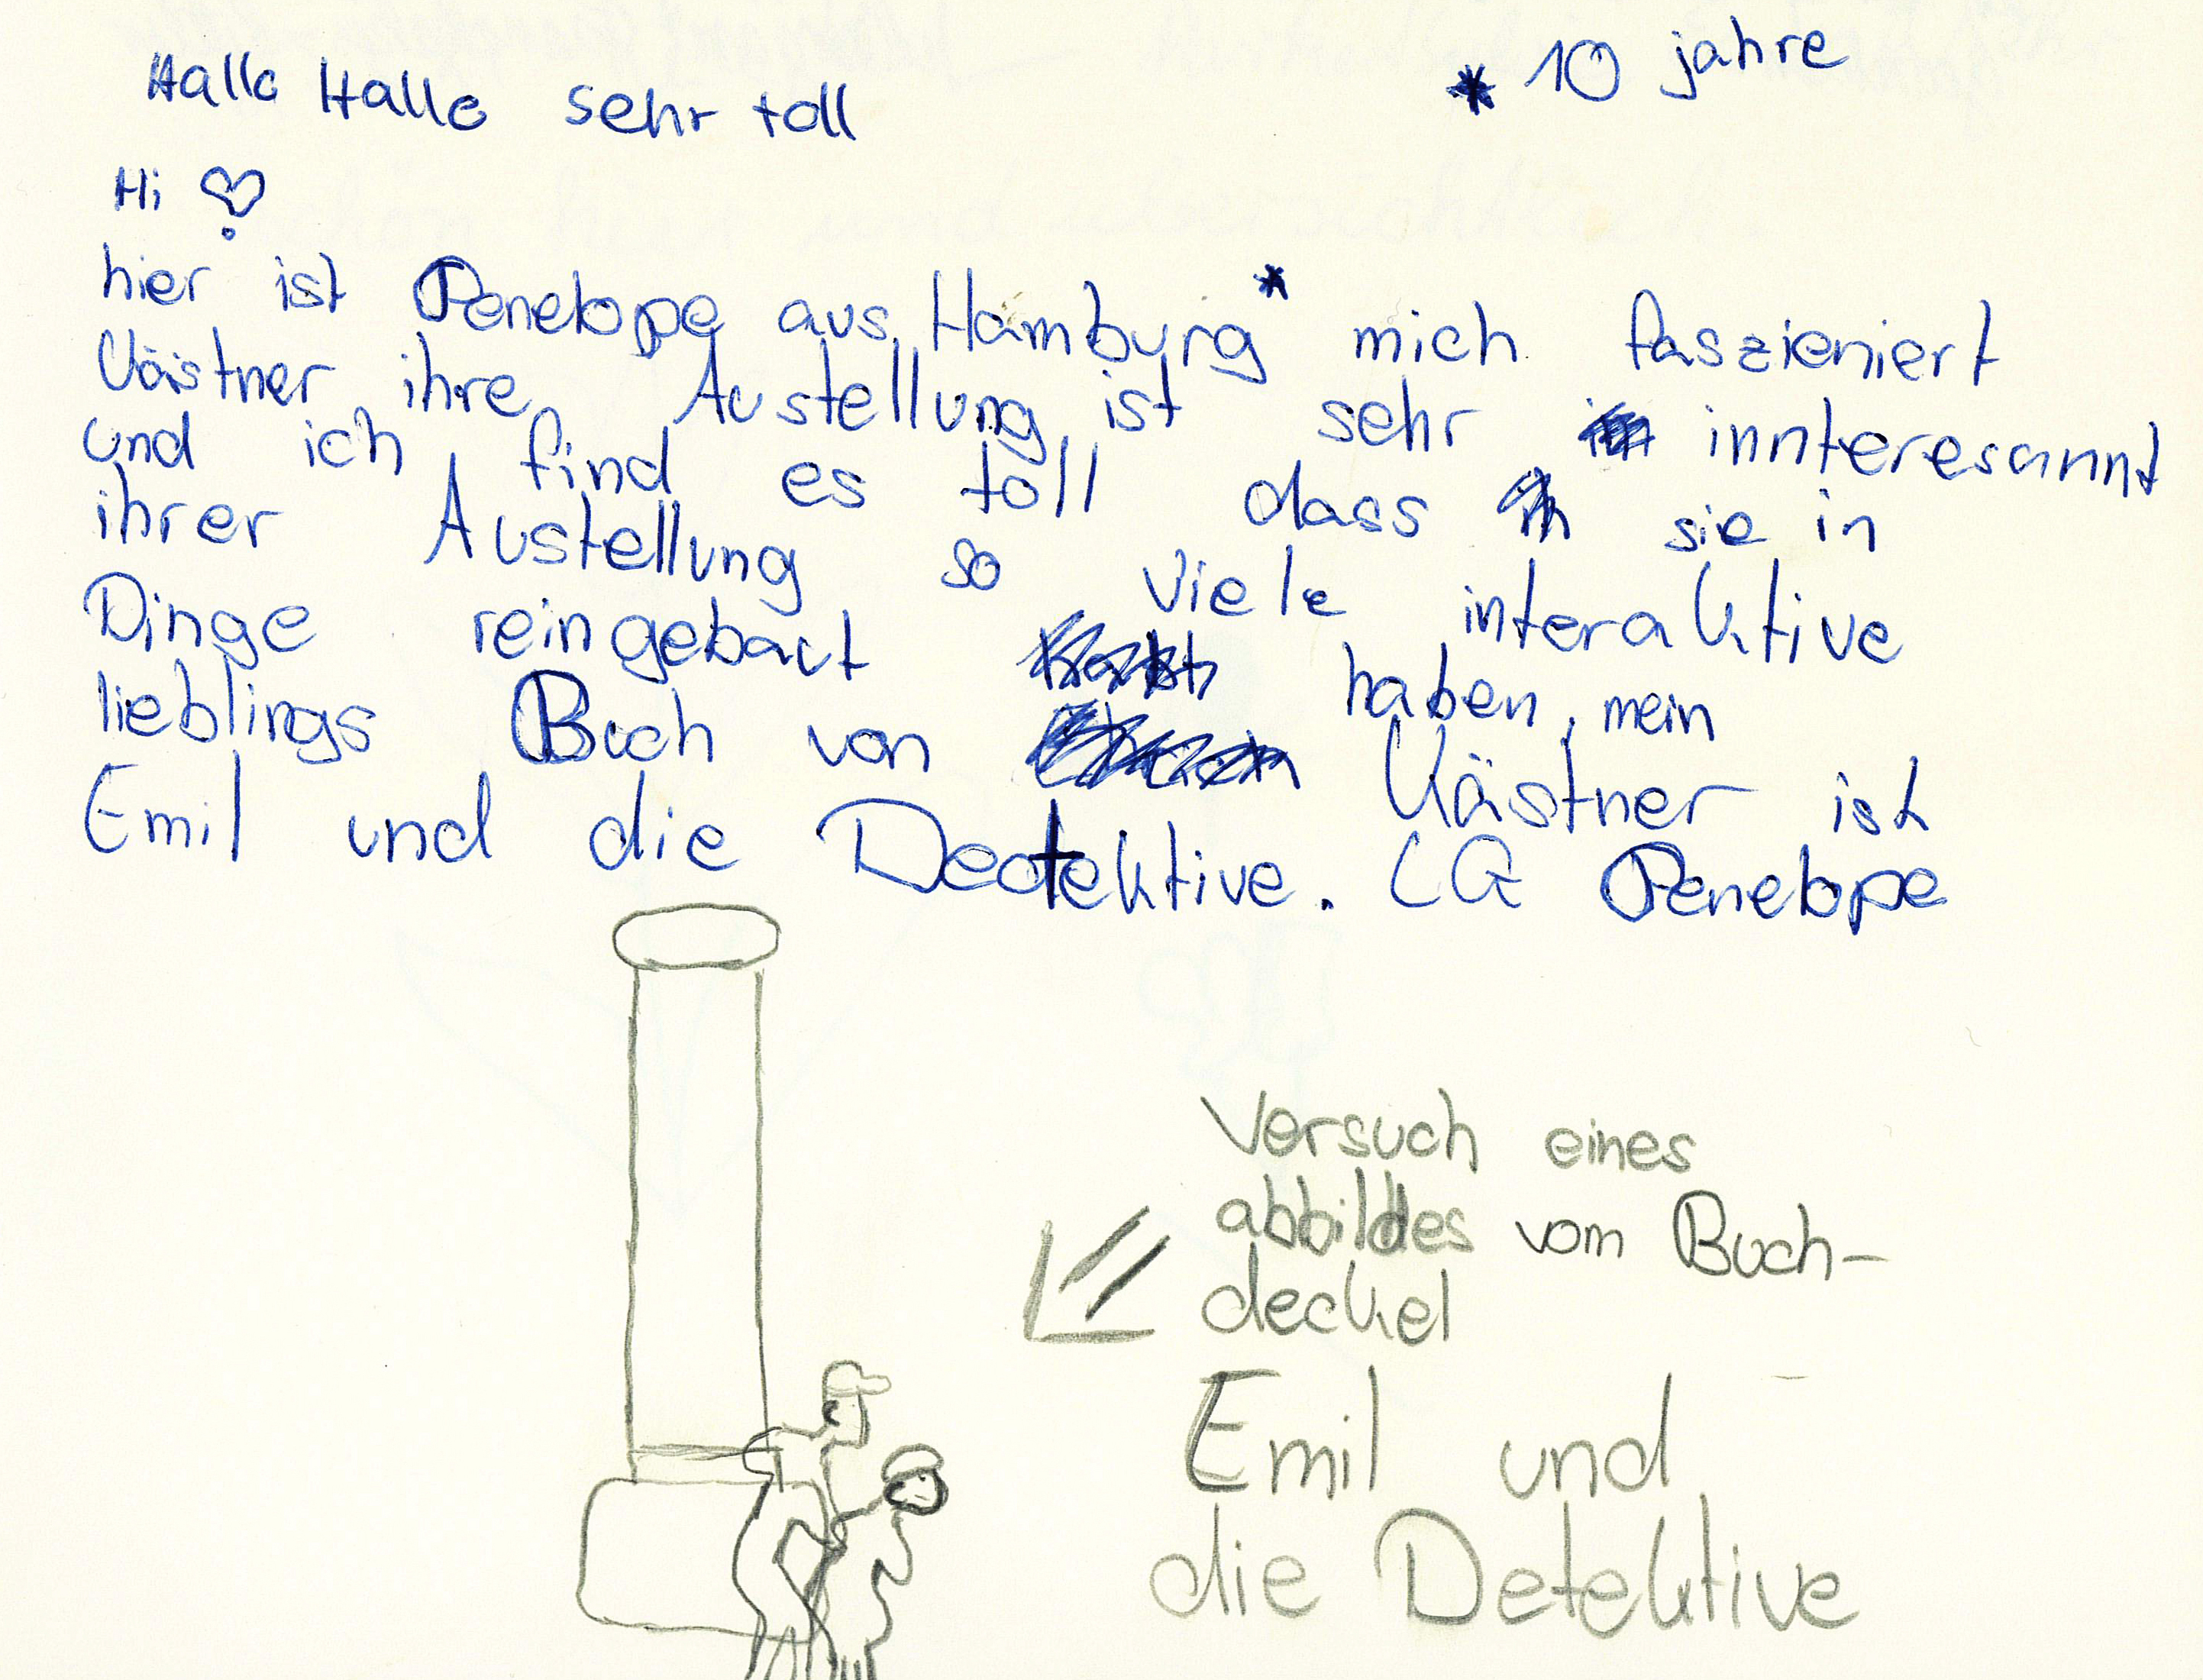 Hallo Hallo sehr toll
* 10 jahre
Hi
hier ist Penelope aus Hamburg* mich faszieniert
Kästner ihre Austellung ist sehr innteresannt
und ich find es toll dass sie in
ihrer Austellung so viele interaktive
Dinge reingebaut haben, mein
lieblings Buch von Kästner ist
Emil und die Dedtektive. LG Penelope
Versuch eines
abbildes vom Buch-
deckel
Emil und
die Detektive